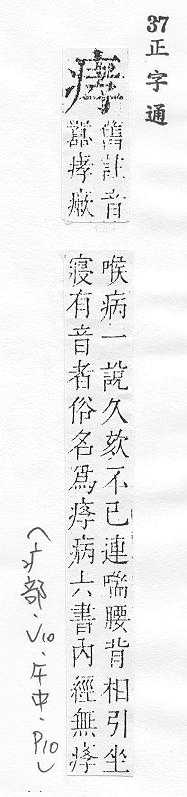 37正字通
痚
舊註音
囂痚瘶
喉病一說久欬不已連喘腰背相引坐
寢有音者俗名爲痚病六書內經無痚
(疒部.V10.午中.P10)